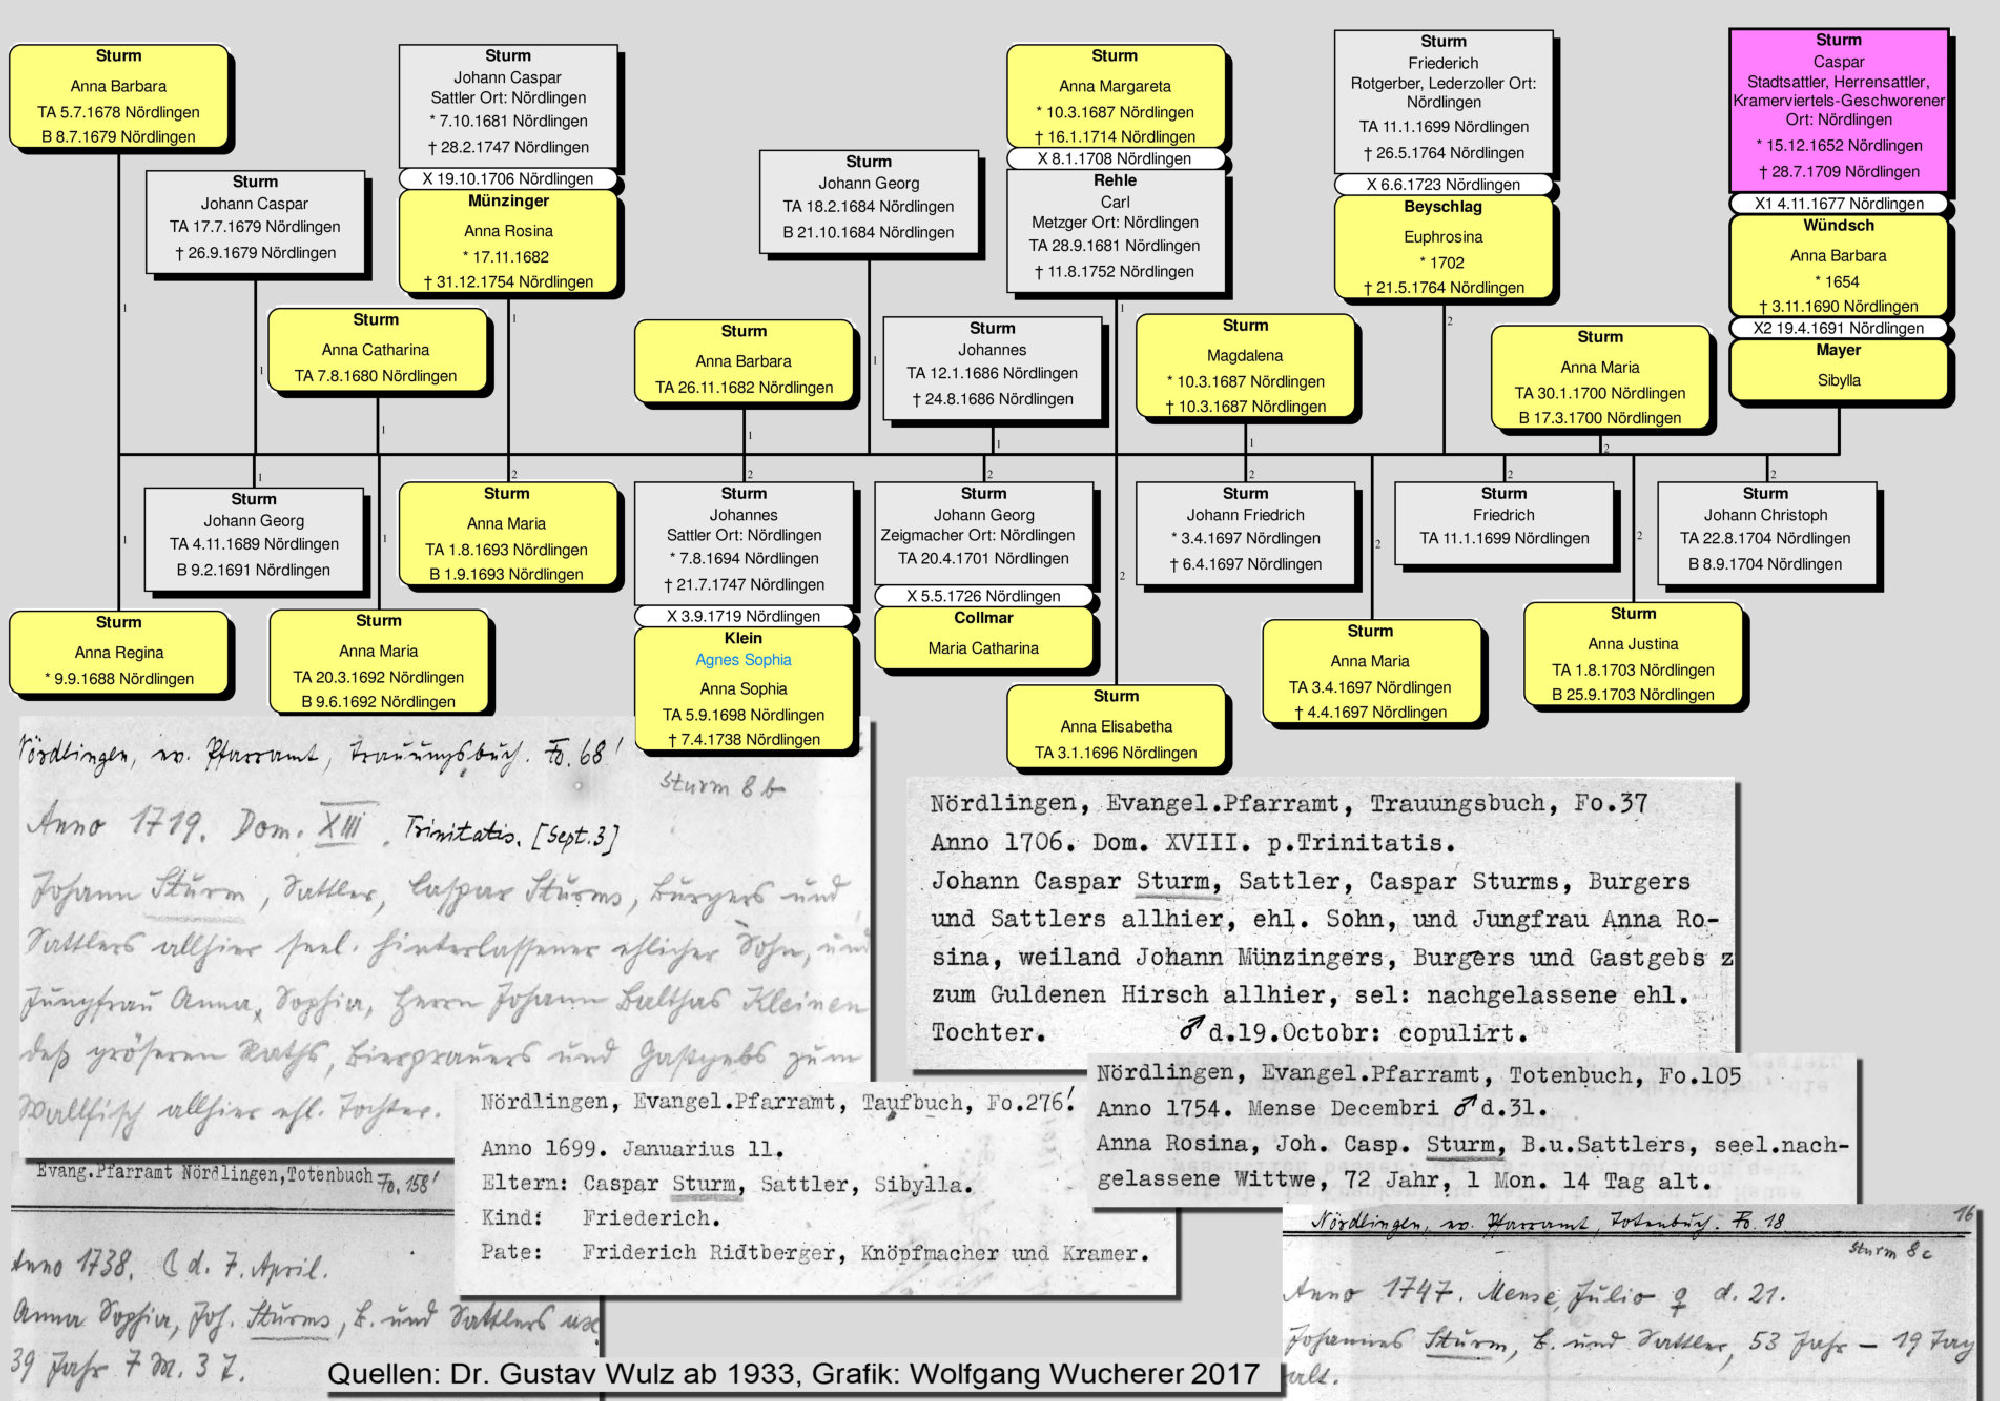 Sturm
Anna Barbara
TA 5.7.1678 Nördlingen
B 8.7.1679 Nördlingen
Sturm
Johann Caspar
TA 17.7.1679 Nördlingen
† 26.9.1679 Nördlingen
Sturm
Johann Caspar
Sattler Ort: Nördlingen
* 7.10.1681 Nördlingen
† 28.2.1747 Nördlingen
X 19.10.1706 Nördlingen
Münzinger
Anna Rosina
* 17.11.1682
† 31.12.1754 Nördlingen
Sturm
Anna Catharina
TA 7.8.1680 Nördlingen
Sturm
Anna Barbara
TA 26.11.1682 Nördlingen
Sturm
Johann Georg
TA 18.2.1684 Nördlingen
B 21.10.1684 Nördlingen
Sturm
Johannes
TA 12.1.1686 Nördlingen
† 24.8.1686 Nördlingen
Sturm
Anna Margareta
* 10.3.1687 Nördlingen
† 16.1.1714 Nördlingen
X 8.1.1708 Nördlingen
Rehle
Carl
Metzger Ort: Nördlingen
TA 28.9.1681 Nördlingen
† 11.8.1752 Nördlingen
Sturm
Magdalena
* 10.3.1687 Nördlingen
† 10.3.1687 Nördlingen
Sturm
Friederich
Rotgerber, Lederzoller Ort:
Nördlingen
TA 11.1.1699 Nördlingen
† 26.5.1764 Nördlingen
X 6.6.1723 Nördlingen
Beyschlag
Euphrosina
* 1702
† 21.5.1764 Nördlingen
Sturm
Anna Maria
TA 30.1.1700 Nördlingen
B 17.3.1700 Nördlingen
Sturm
Caspar
Stadtsattler, Herrensattler,
Kramerviertels-Geschworener
Ort: Nördlingen
* 15.12.1652 Nördlingen
† 28.7.1709 Nördlingen
X1 4.11.1677 Nördlingen
Wündsch
Anna Barbara
* 1654
† 3.11.1690 Nördlingen
X2 19.4.1691 Nördlingen
Mayer
Sibylla
1
1
1
1
1
1
1
1
1
2
2
Sturm
Anna Regina
* 9.9.1688 Nördlingen
1
Sturm
Johann Georg
TA 4.11.1689 Nördlingen
B 9.2.1691 Nördlingen
1
Sturm
Anna Maria
TA 20.3.1692 Nördlingen
B 9.6.1692 Nördlingen
1
Sturm
Anna Maria
TA 1.8.1693 Nördlingen
B 1.9.1693 Nördlingen
2
Sturm
Johannes
Sattler Ort: Nördlingen
* 7.8.1694 Nördlingen
† 21.7.1747 Nördlingen
X 3.9.1719 Nördlingen
Klein
Agnes Sophia
Anna Sophia
TA 5.9.1698 Nördlingen
† 7.4.1738 Nördlingen
2
Sturm
Johann Georg
Zeigmacher Ort: Nördlingen
TA 20.4.1701 Nördlingen
X 5.5.1726 Nördlingen
Collmar
Maria Catharina
2
Sturm
Anna Elisabetha
TA 3.1.1696 Nördlingen
2
Sturm
Johann Friedrich
* 3.4.1697 Nördlingen
† 6.4.1697 Nördlingen
2
Sturm
Anna Maria
TA 3.4.1697 Nördlingen
† 4.4.1697 Nördlingen
2
Sturm
Friedrich
TA 11.1.1699 Nördlingen
2
Sturm
Anna Justina
TA 1.8.1703 Nördlingen
B 25.9.1703 Nördlingen
2
Sturm
Johann Christoph
TA 22.8.1704 Nördlingen
B 8.9.1704 Nördlingen
2
Nördlingen, ev. Pfarramt, Trauungsbuch. Fo. 68'
Sturm 8 b
Anno 1719. Dom. XIII. Trinitatis. [Sept. 3]
Johann Sturm, Sattler, Caspar Sturms, Burgers und
Sattlers allhier seel. hinterlassener ehlicher Sohn, und
Jungfrau Anna Sophia, Herrn Johann Balthas Kleinen
deß gröseren Raths, Bierprauers und Gastgebs zum
Wallfisch allhier ehl. Tochter.
Nördlingen, Evangel.Pfarramt, Trauungsbuch, Fo.37
Anno 1706. Dom. XVIII. p.Trinitatis.
Johann Caspar Sturm, Sattler, Caspar Sturms, Burgers
und Sattlers allhier, ehl. Sohn, und Jungfrau Anna Ro-
sina, weiland Johann Münzingers, Burgers und Gastgebs z
zum Guldenen Hirsch allhier, sel: nachgelassene ehl.
Tochter. ♂ d.19.Octobr: copulirt.
Nördlingen, Evangel.Pfarramt, Totenbuch, Fo.105
Anno 1754. Mense Decembri ♂ d.31.
Anna Rosina, Joh. Casp. Sturm, B.u.Sattlers, seel.nach-
gelassene Wittwe, 72 Jahr, 1 Mon. 14 Tag alt.
Nördlingen, Evangel.Pfarramt, Taufbuch, Fo.276!
Anno 1699. Januarius 11.
Eltern: Caspar Sturm, Sattler, Sibylla.
Kind: Friederich.
Pate: Friderich Ridtberger, Knöpfmacher und Kramer.
Evang.Pfarramt Nördlingen,Totenbuch Fo. 158'
Anno 1738. ☾ d. 7. April.
Anna Sophia, Joh. Sturms, B. und Sattlers ux
39 Jahr 7 M. 3 T.
Nördlingen, ev. Pfarramt, Totenbuch. Fo. 18
16
Sturm 8 c
Anno 1747. Mense Julio ♀ d. 21.
Johannes Sturm, B. und Sattler, 53 Jahr – 19 Tag
alt.
Quellen: Dr. Gustav Wulz ab 1933, Grafik: Wolfgang Wucherer 2017